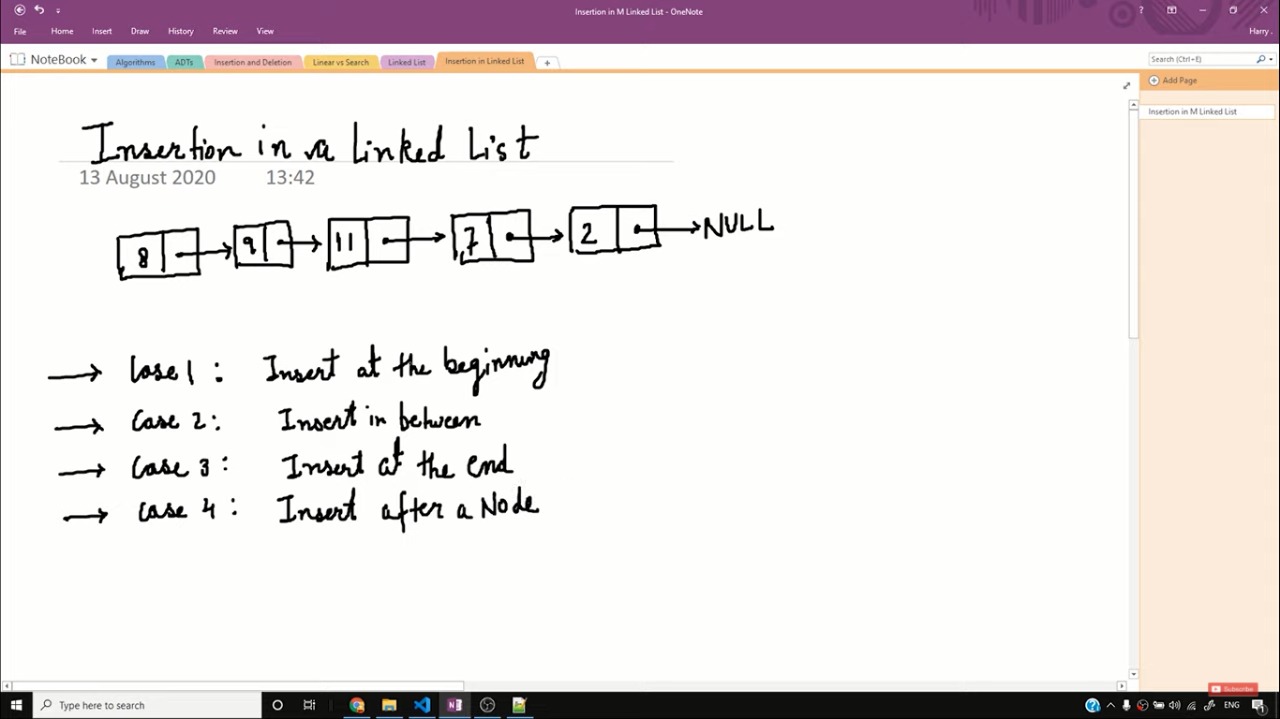 Insertion in M Linked List - OneNote
?
File Home Insert Draw History Review View
Harry
NoteBook Algorithms ADTs Insertion and Deletion Linear vs Search Linked List Insertion in Linked List +
Search (Ctrl+E)
Add Page
Insertion in M Linked List
Insertion in a Linked List
13 August 2020 13:42
8 9 11 7 2 NULL
Case 1 : Insert at the beginning
Case 2 : Insert in between
Case 3 : Insert at the end
Case 4 : Insert after a Node
Subscribe
Type here to search
ENG